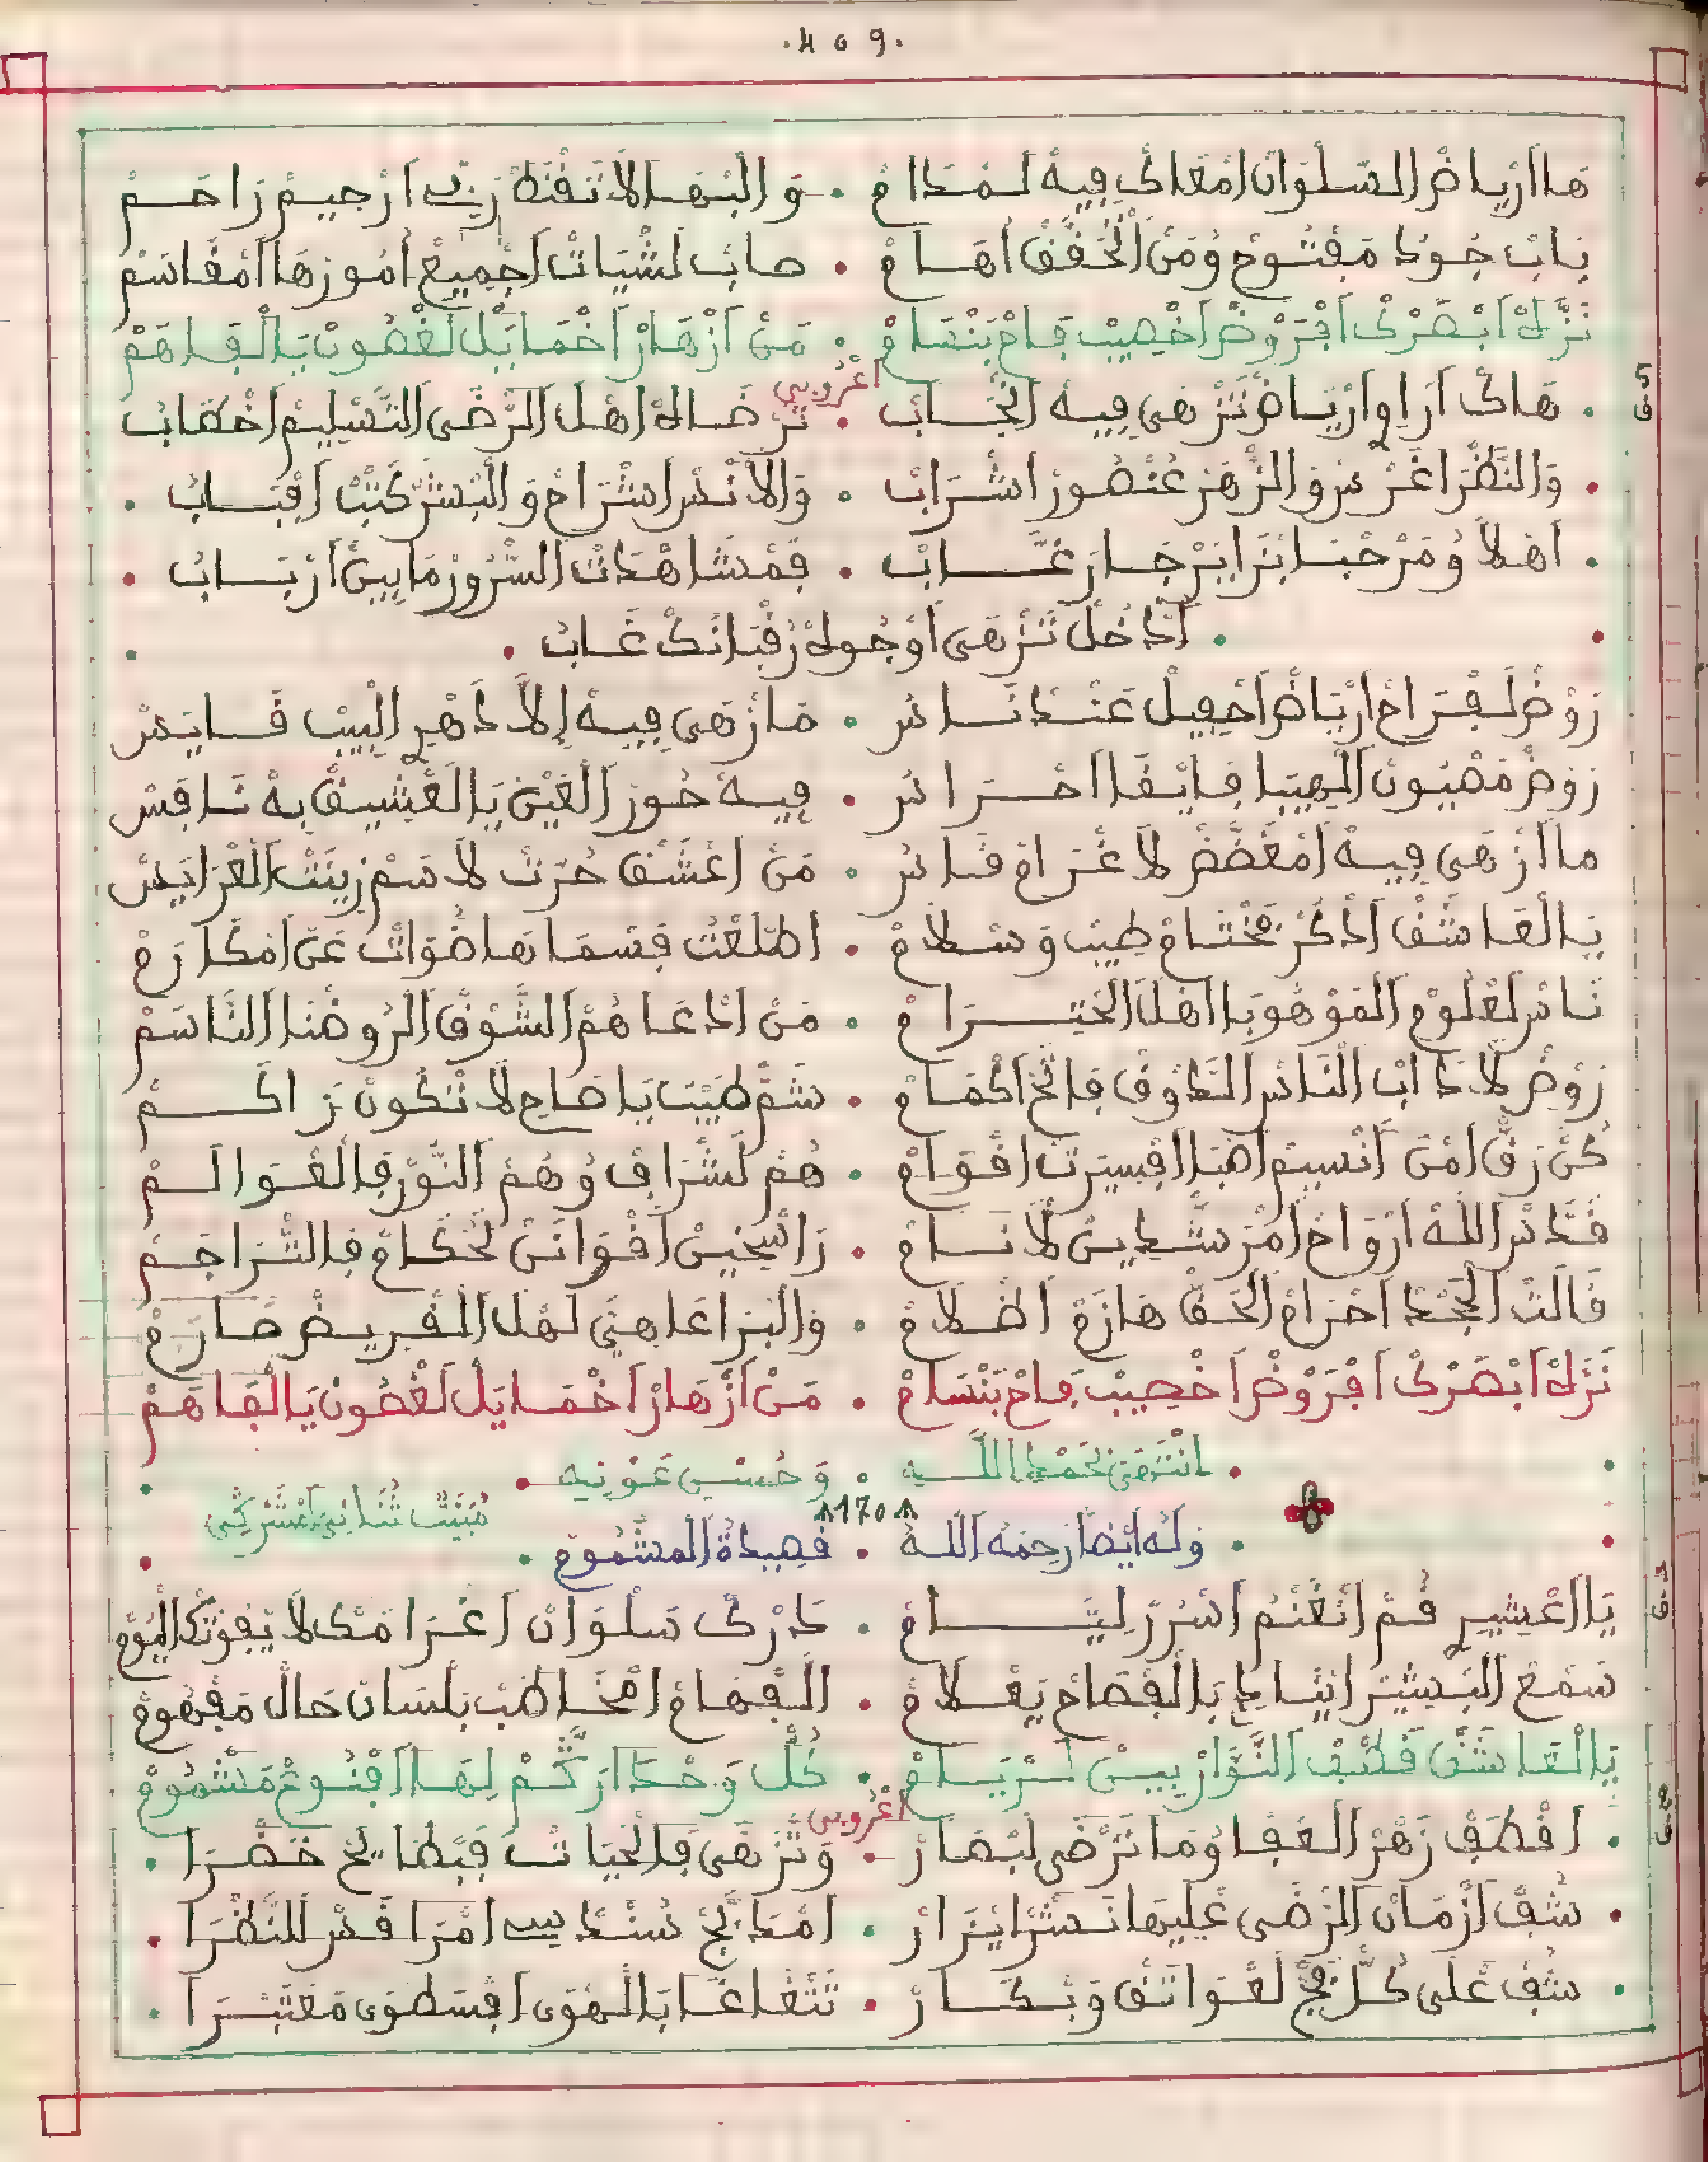 .409.
هَا ارْيَاضْ السَّلْوَانْ امْعَاكْ فِيهْ لَمْدَامْ . وَالْبْهَا لَا تَقْنَطْ رَبِّي ارْحِيمْ رَاحَمْ
بَابْ جُودُ مَفْتُوحْ وُمَنْ الْحُقَّقْ اهَامْ . صابْ لَشْيَاتْ اجْمِيعْ امُورْهَا امْقَاسَمْ
نَزَّهْ ابْصَرْكْ افْرَوْضْ اخْصِيبْ فَاحْ بَنْسَامْ . مَنْ ازْهَارْ اخْمَايَلْ لَغْصُونْ يَا الْفَاهَمْ
اعْرُوبي
هَاكْ ارَاوْ ارْيَاضْ تَزْهَى فِيهْ انْجَابْ . تَرْضَاهْ اهْلْ الرّْضَى التَّسْلِيمْ اخْطَابُ
وَالنَّظْرَا غَرْسْ والزّْهَرْ عُنْصُورْ اشْرَابْ . وَالْأُنْسْ اشْرَاحْ وَالْبْشَرْ كَتْبْ اقْبَابُ
اهْلاً وُمَرْحْبَا بْرَابَرْجَا رَغَّابْ . فَمْشَاهْدَاتْ السّْرُورْ مَا بِينْ ارْبَابُ
ادْخُلْ تَزْهَى اوْجُوهْ رُقْبَانَكْ غَابُ
رَوْضْ لَفْرَاحْ ارْيَاضْ احْفِيلْ عَنْدْ نَاسْ . مَا زْهَى فِيهْ إِلاَّ دَاهِي الْبِيبْ فَايَسْ
رَوْضْ مَصْيُونْ الْهِيبَا فَايْقَا احْرَاسْ . فِيهْ حُورْ الْعَيْنْ يَا الْعْشِيقْ بِهْ نَافَسْ
ما ازْهَى فِيهْ امْغَضَّضْ لَا غْرَامْ قَاسْ . مَنْ اعْشَقْ حُرْتْ لاَسَمْ زِينْتْ الْعْرَايَسْ
يَا الْعَاشَقْ ادْكَرْ مَخْتَامْ طِيبْ وَسْلَامْ . اطْلَعْتْ فَسْمَاهَا ضْوَاتْ عَنْ امْكَارَمْ
نَاسْ لَعْلُومْ الْمَوْهُوبَا اهْلْ الْحْتِرَامْ . مَنْ ادْعَاهُمْ الشَّوْقْ الرُوضْنَا النَّاسَمْ
رَوْضْ لَادَابْ النَّاسْ الدّْوقْ فَاتْحْ اكْمَامْ . شَمّْ طِيبْ يَا صَاحِ لَا تْكُونْ زَاكَمْ
كُنْ رَقّْ امْنْ انْسِيمْ اصْبَا افْسِيرْتْ اقْوَامْ . هُمْ لَشْرَافْ وُهُمْ النُّورْ فَالْعْوَالَمْ
قَدَّسْ اللَّهْ ارْوَاحْ امْرَشّْدِينْ لَانَامْ . رَاسْخِينْ افْوَانَنْ لَحْكَامْ فَالتّْرَاجَمْ
قَالَتْ الْجَحْدْ احْزَامْ الْحَقْ هَازَمْ اظْلَامْ . والْبَرَاعَا هِيَ لَهْلْ الْقْرِيضْ صَارَمْ
نَزَّهْ ابْصَرْكْ افْرَوْضْ اخْصِيبْ فَاحْ بَنْسَامْ . مَنْ ازْهَارْ اخْمَايَلْ لَغْصُونْ يَا الْفَاهَمْ
انْتَهَى بْحَمْدِ اللَّهِ . وَحُسْنِ عَوْنِهِ
170
مْبَيَّتْ ثْنَائِي اعْشَرْكِي
وَلَهُ أَيْضًا رَحِمَهُ اللَّهُ . قَصِيدَةُ الْمَشْمُومْ
يَا الْعْشِيرْ قُمْ انْغَنْمُ اسْرَرْ لِيَّامْ . دَرْكْ سَلْوَانْ اغْرَامَكْ لَا يْفُوتَكْ الْيُومْ
سَمْعْ الْبْشِيرْ ايْنَادِي بَالْفْصَاحْ يَعْلَامْ . الْفْهَامْ امْخَاطْبْ بَلْسَانْ حَالْ مَفْهُومْ
يَا الْعَاشَقْ قَطْفْ النُّوَّارْ بِينْ لَرْيَامْ . كُلّْ وَحْدَا رَكّْمْ لِهَا افْنُوعْ مَشْمُومْ
اعْرُوبي
اقْطَفْ زَهْرْ الْعْفَا وُمَا تَرْضَى لَبْصَارْ . وَتْزْهَى فَالْحْيَاتْ فَبْطَايَحْ خَضْرَا
شُفْ ازْمَانْ الرّْضَى عْلِيهَا نَشْرَا يَزَارْ . امْدَبَّجْ سُنْدُسِي امْرَاقَشْ لَلنَّظْرَا
شُفْ عْلَى كُلّْ فَجْ لَعْوَاتَقْ وَبْكَارْ . تَتْغَاغَا بَالْهْوَى افْسَطْوَى مَعْتَبْرَا